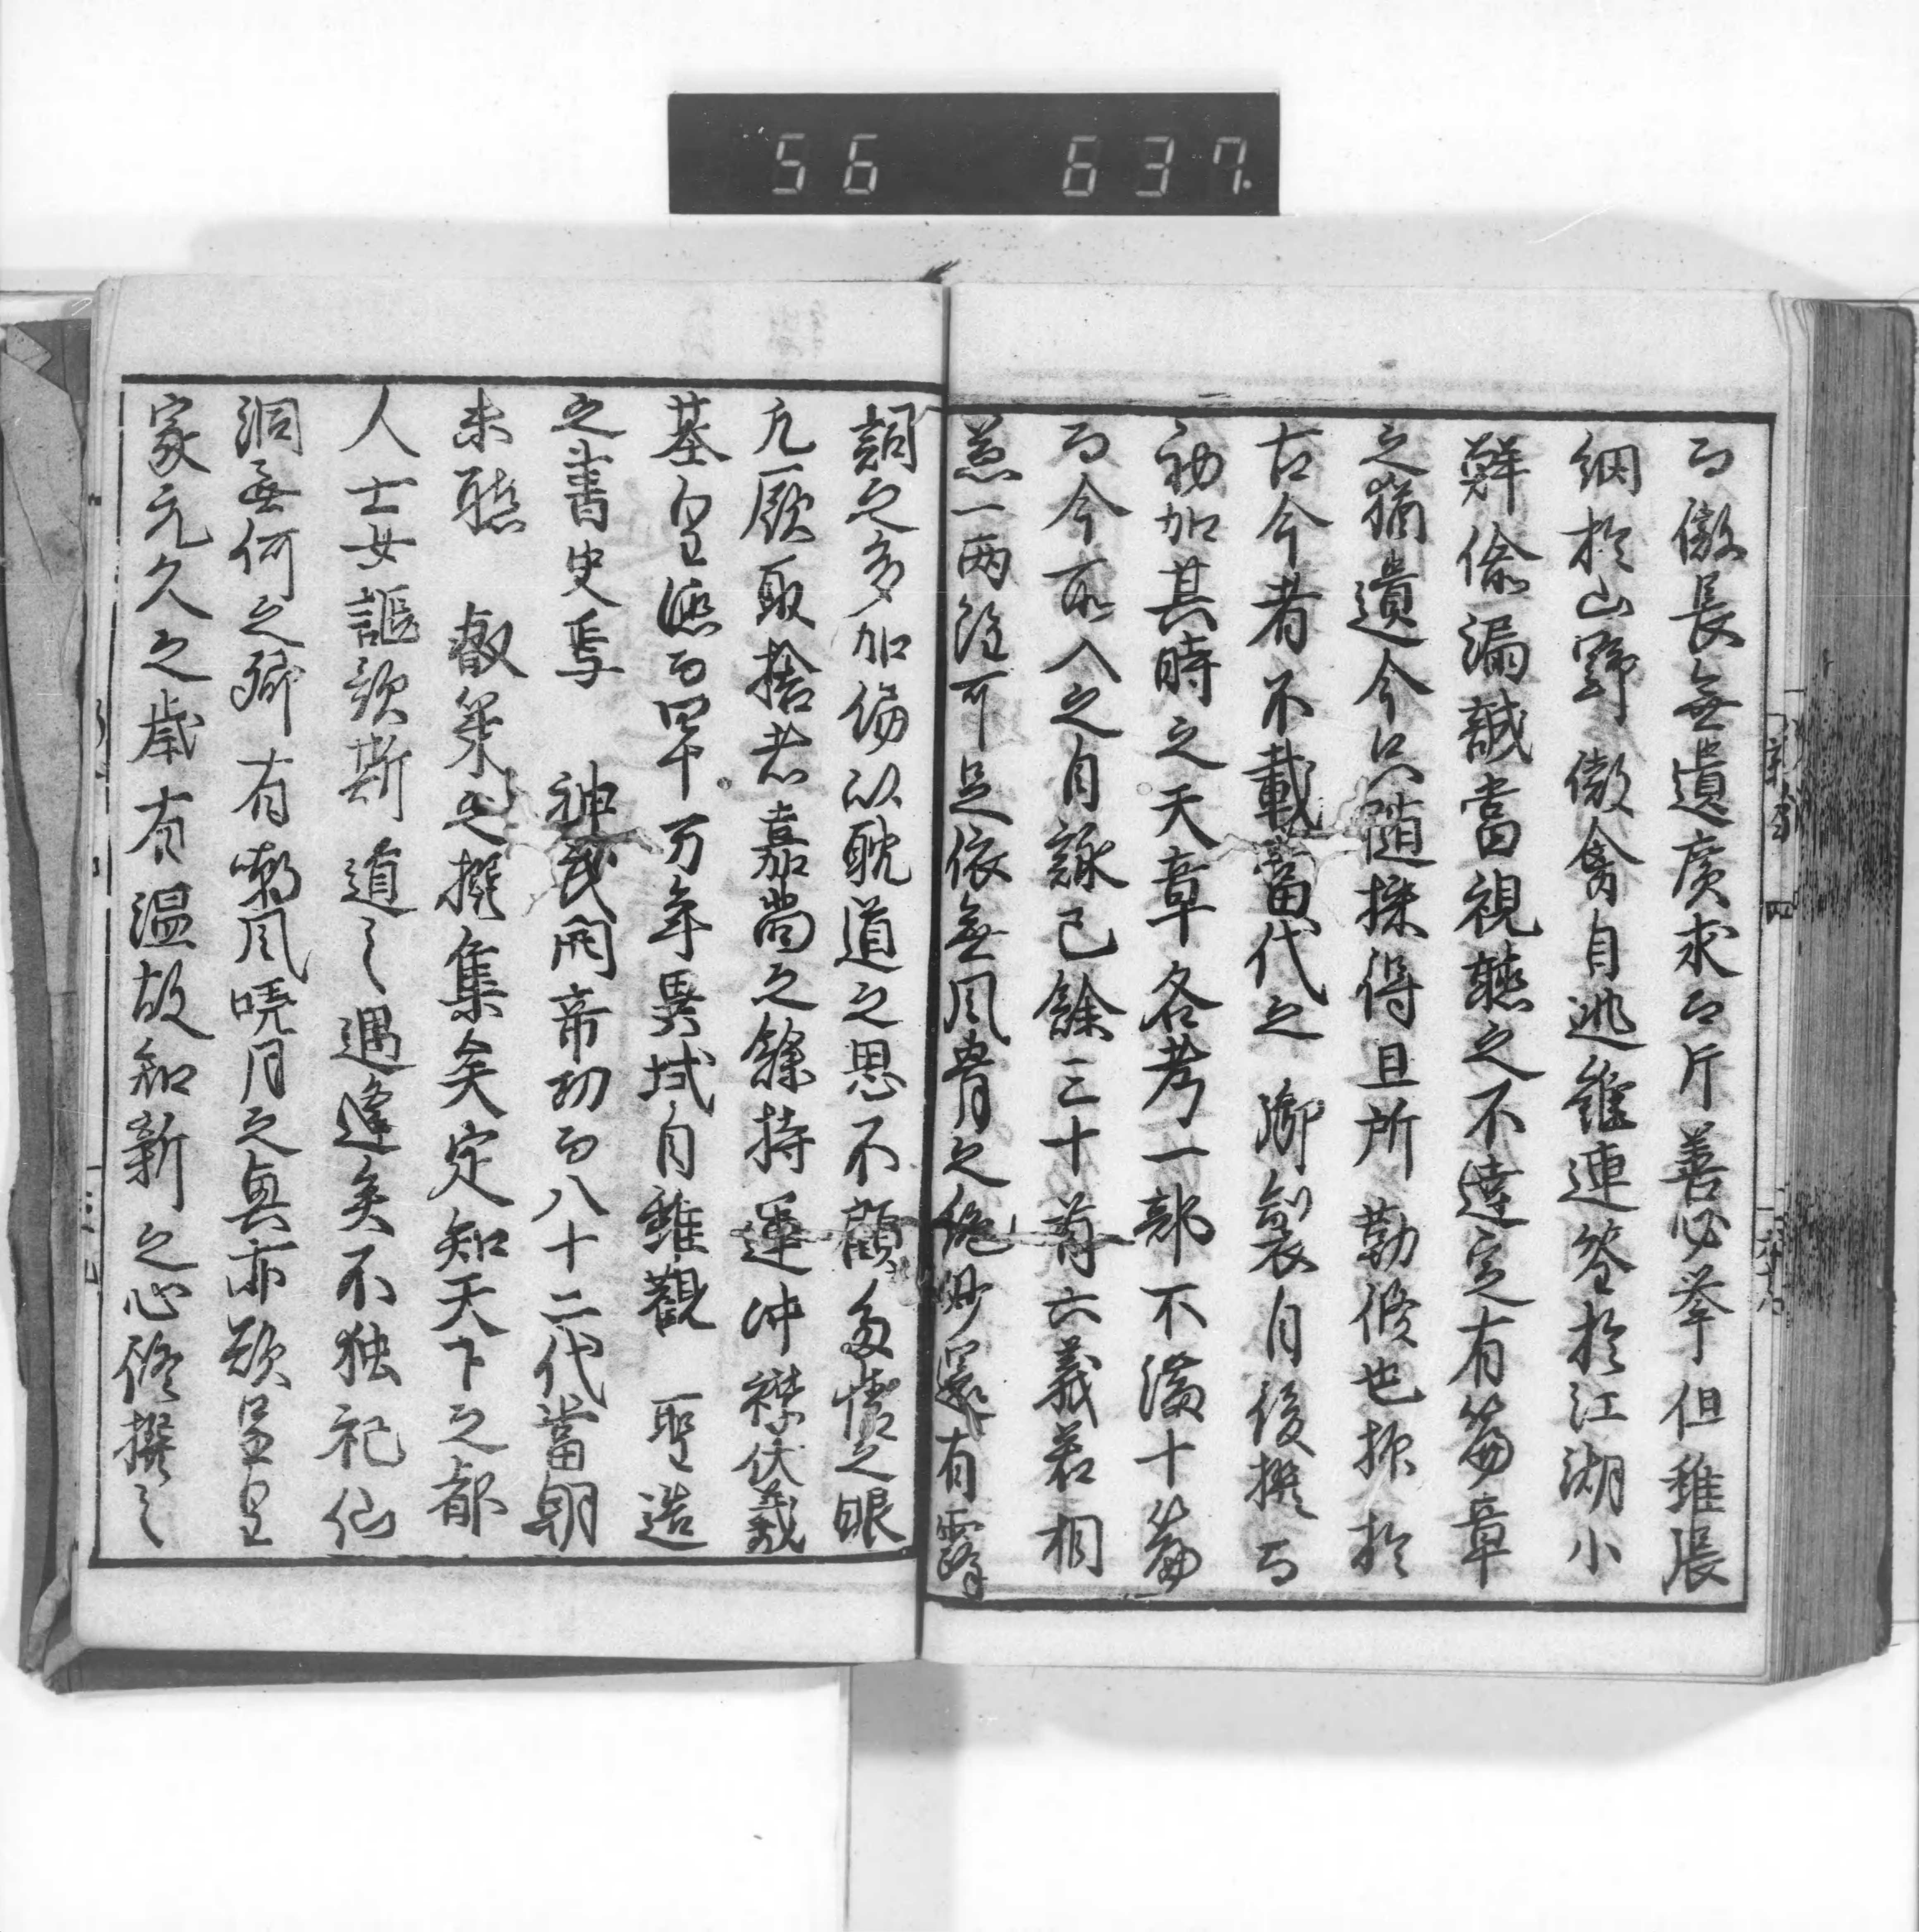 56 637.
而微長無遺廣求而片善必挙但雖張
網於山野微禽自逃雖連筌於江湖小
鮮偸漏誠當視聴之不達定有篇章
之猶遺今只随採得且所勒修也抑於
古今者不載當代之御製自後撰而
初加其時之天章各考一部不満十篇
而今所入之自詠已餘三十首六義若相
兼一両雖可足依無風骨之絶妙還有露
詞之多加偏以耽道之思不顧多情之眼
凡厥取捨者嘉尚之餘特運冲襟伏羲
基皇徳而四十万年異域自雖觀聖造
之書史焉神武開帝功而八十二代當朝
未聴叡策之撰集矣定知天下之都
人士女謳歌斯道之遇逢矣不独記仙
洞無何之郷有嘲風哢月之興亦欲呈皇
家元久之歳有温故知新之心修撰之